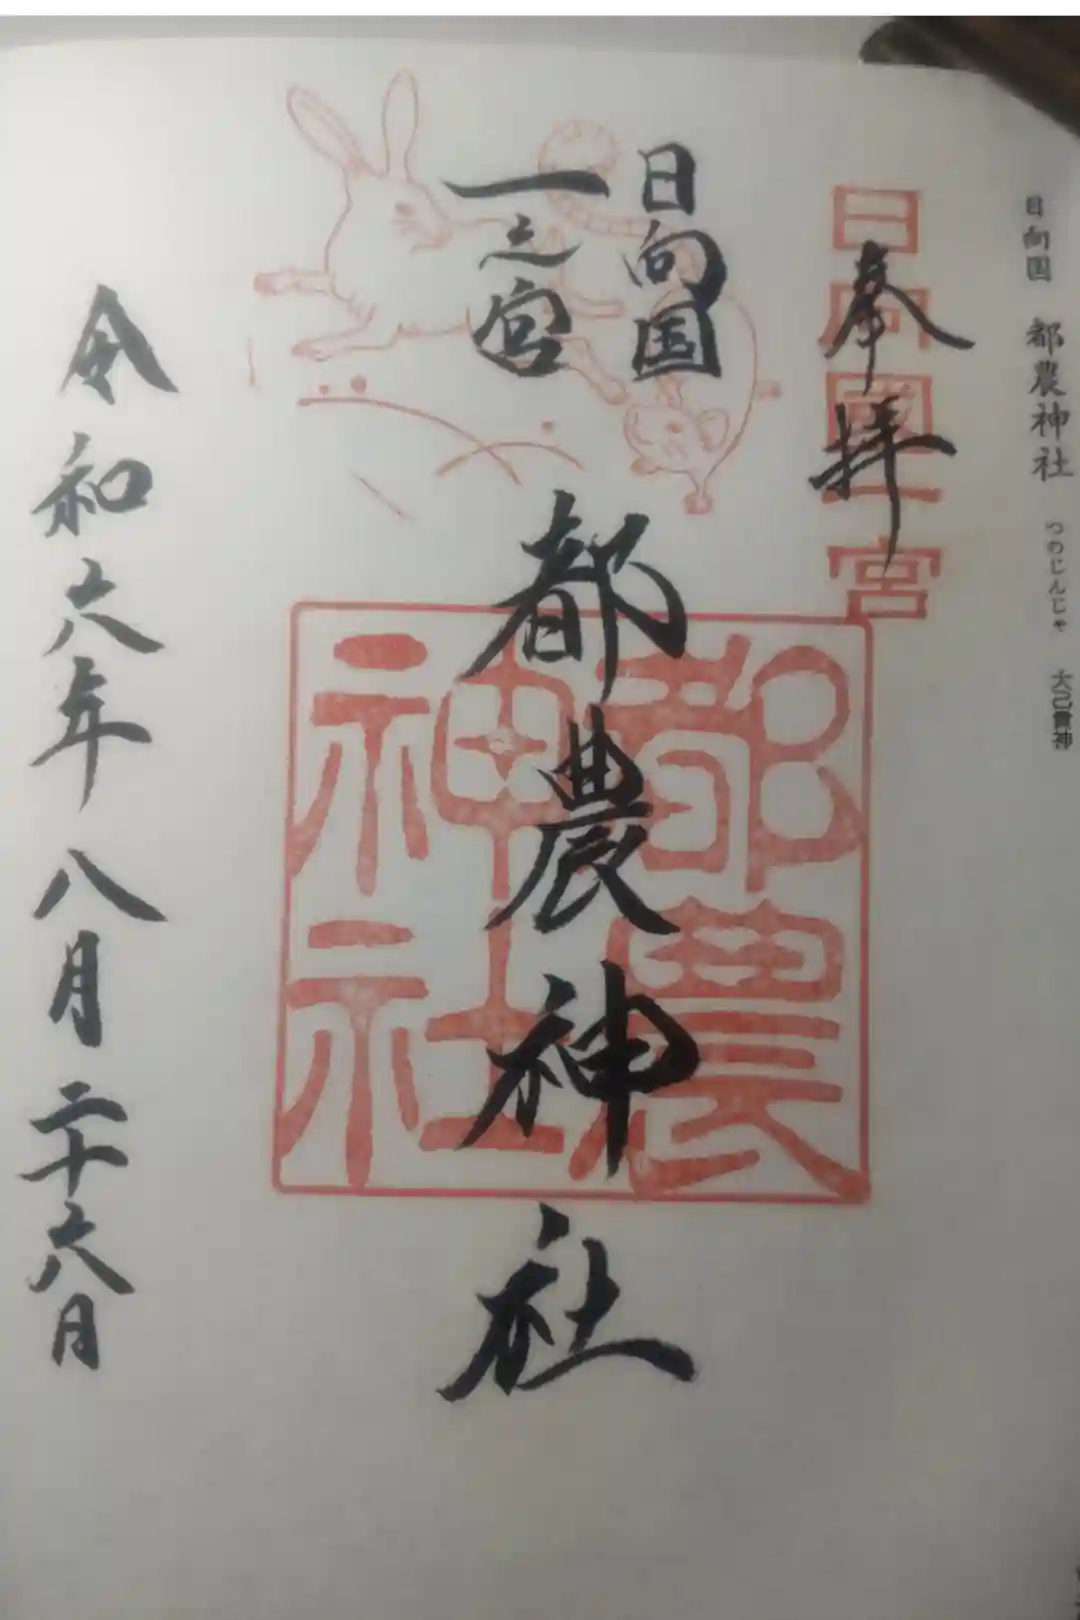 日向国 都農神社 つのじんじゃ 大己貴神
奉拝
日向國一宮
日向国
一之宮
都農神社
都農
神社
令和六年八月二十六日